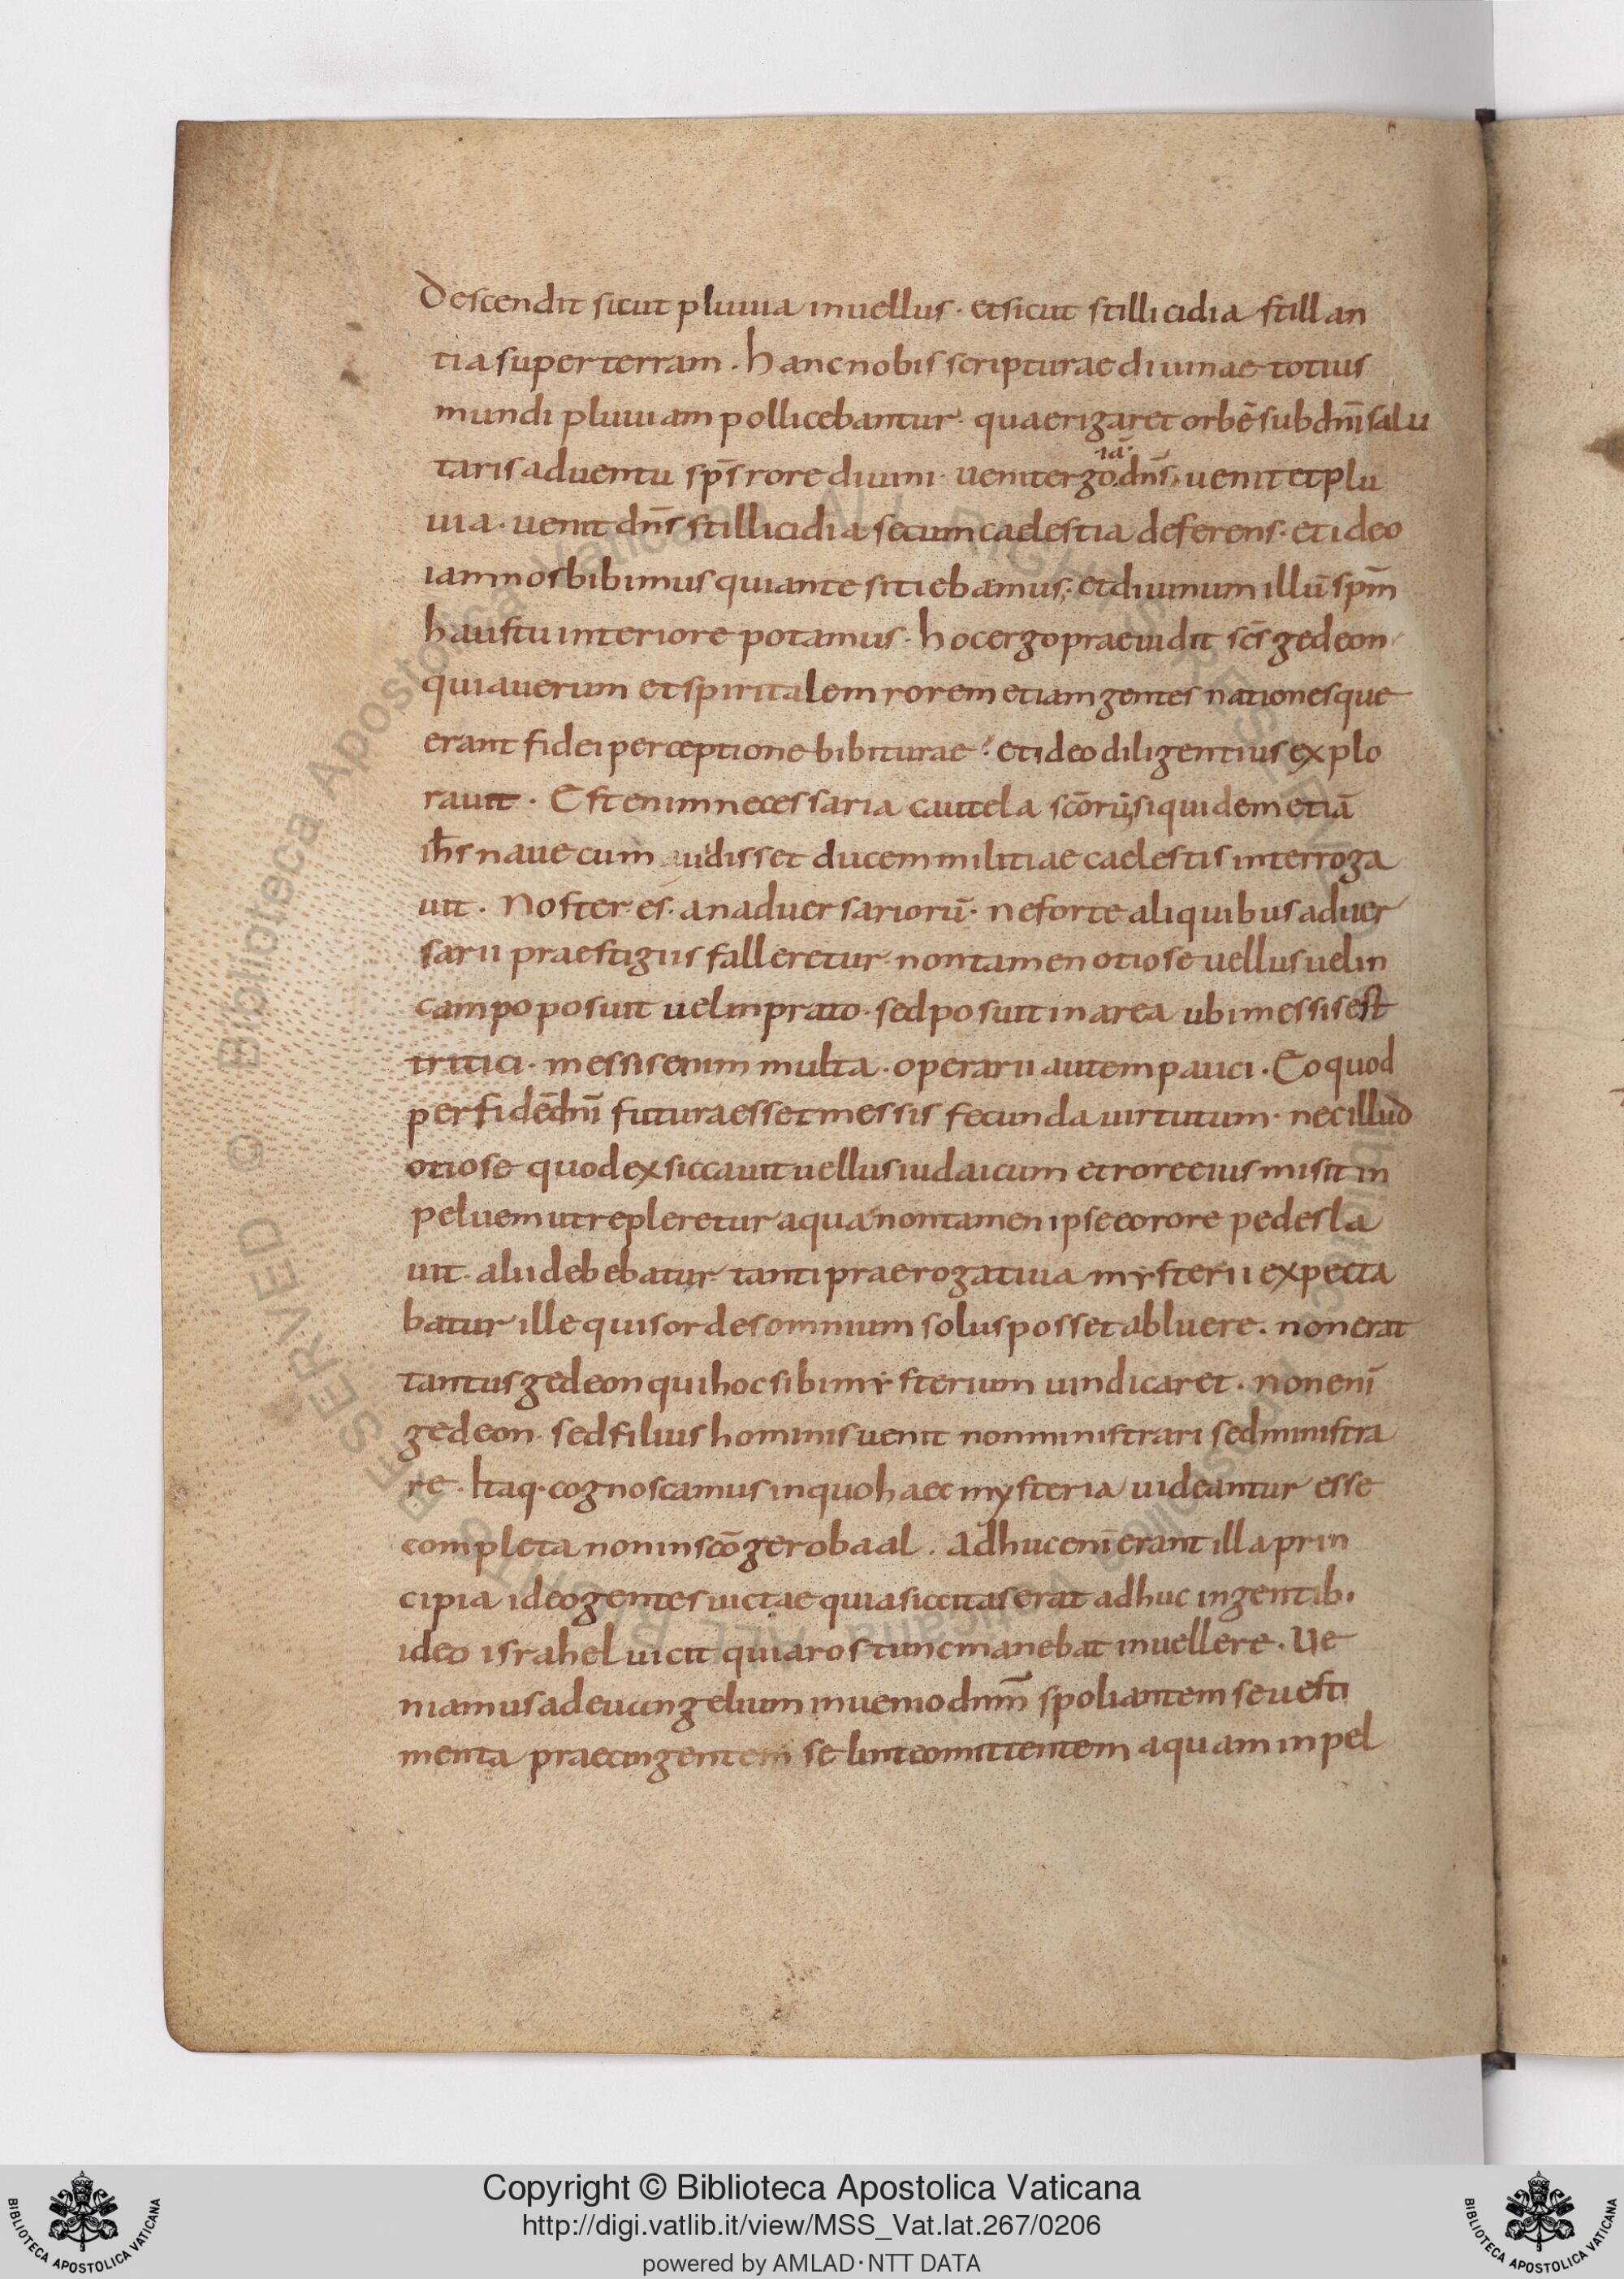 Descendit sicut pluuia inuellus · etsicut stillicidia stillan
tia super terram · hanc nobis scripturae diuinae totius
mundi pluuiam pollicebantur · quae rigaret orbē sub dn̄i salu
taris aduentu sp̄s rore diuini · uenit ergo iā dn̄s · uenit et plu
uia · uenit dn̄s stillicidia secum caelestia deferens · et ideo
iam nos bibimus qui ante sitiebamus · et diuinum illū sp̄m
haustu interiore potamus · hoc ergo praeuidit sc̄s gedeon
quia uerum et spiritalem rorem etiam gentes nationesque
erant fidei perceptione bibiturae · et ideo diligentius explo
rauit · Est enim necessaria cautela sc̄orū siquidem etiā
ih̄s naue cum uidisset ducem militiae caelestis interroga
uit · Noster es · an aduersariorū · ne forte aliquibus aduer
sarii praestigiis falleretur · non tamen otiose uellus uel in
campo posuit uel in prato · sed posuit in area ubi messis est
tritici · messis enim multa · operarii autem pauci · Eo quod
per fidē dn̄i futura esset messis fecunda uirtutum · nec illud
otiose quod exsiccauit uellus iudaicum et rore eius misit in
peluem ut repleretur aqua non tamen ipse eo rore pedes la
uit · alii debebatur tanti praerogatiua mysterii expecta
batur ille qui sordes omnium solus posset abluere · non erat
tantus gedeon qui hoc sibi mysterium uindicaret · non enī
gedeon · sed filius hominis uenit non ministrari sed ministra
re · Itaq· cognoscamus in quo haec mysteria uideantur esse
completa non in sc̄o gerobaal · Adhuc enī erant illa prin
cipia ideo gentes uictae quia siccitas erat adhuc in gentib·
ideo israhel uicit quia ros tunc manebat in uellere · Ue
niamus ad euangelium inuenio dn̄m spoliantem se uesti
menta praecingentem se linteo mittentem aquam in pel
Copyright © Biblioteca Apostolica Vaticana
http://digi.vatlib.it/view/MSS_Vat.lat.267/0206
powered by AMLAD·NTT DATA
BIBLIOTECA APOSTOLICA VATICANA
BIBLIOTECA APOSTOLICA VATICANA